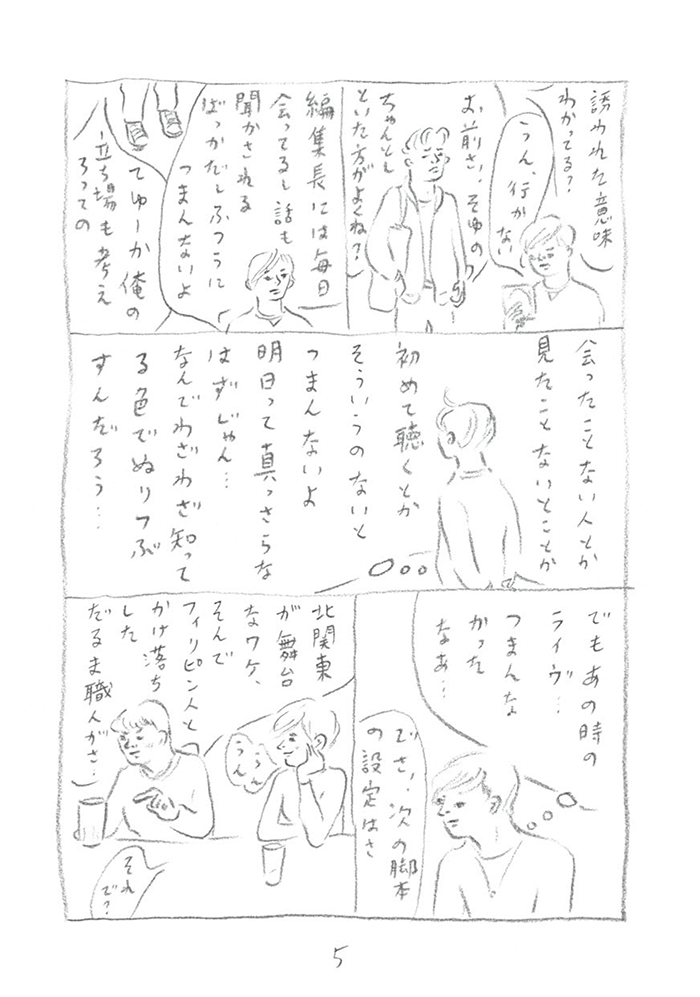 誘われた意味
わかってる?
うん、行かない
お前さ、そゆの
ちゃんと
といた方がよくね?
編集長には毎日
会ってるし話も
聞かされる
ばっかだしふつうに
つまんないよ
てゆーか俺の
立ち場も考え
ろっての
会ったことない人とか
見たことないとことか
初めて聴くとか
そういうのないと
つまんないよ
明日って真っさらな
はずじゃん…
なんでわざわざ知って
る色でぬりつぶ
すんだろう…
でもあの時の
ライヴ…
つまんな
かった
なあ…
でさ、次の脚本
の設定はさ
北関東
が舞台
なワケ、
そんで
フィリピン人と
かけ落ち
した
だるま職人がさ…
うん
うん
それ
で?
5